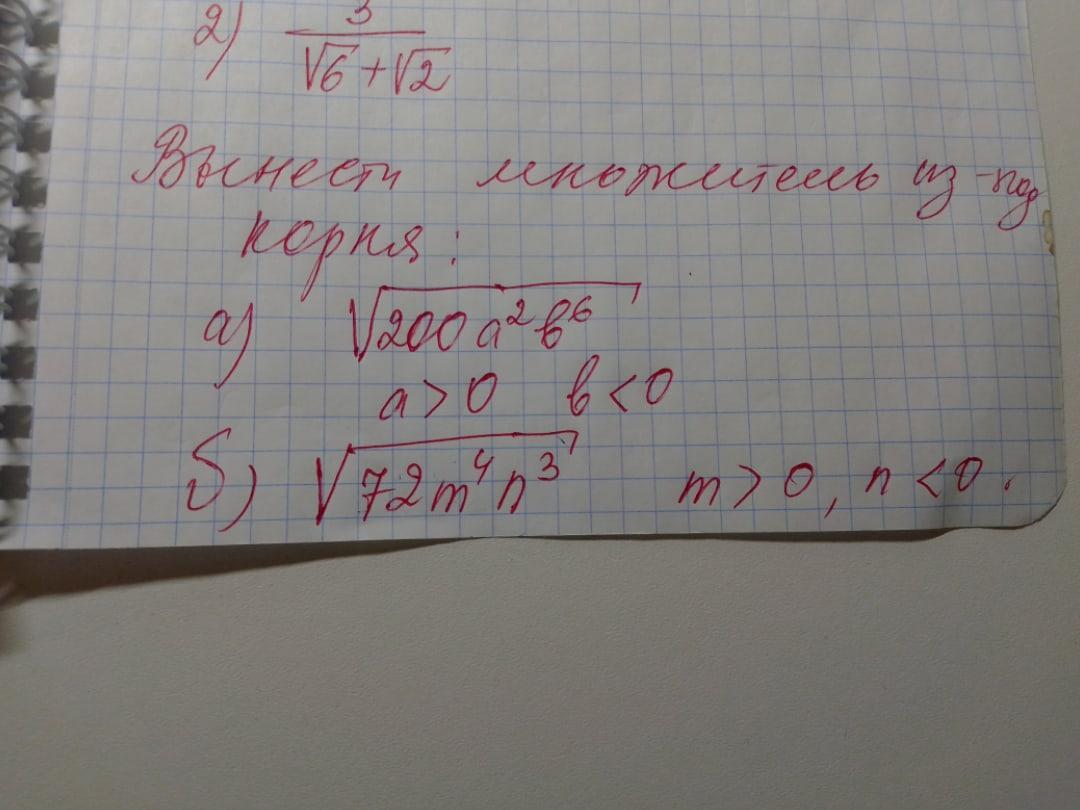 2) 3/(√6+√2)
Вынести множитель из-под
корня:
а) √200a²b⁶
a>0 b<0
б) √72m⁴n³ m>0, n<0.